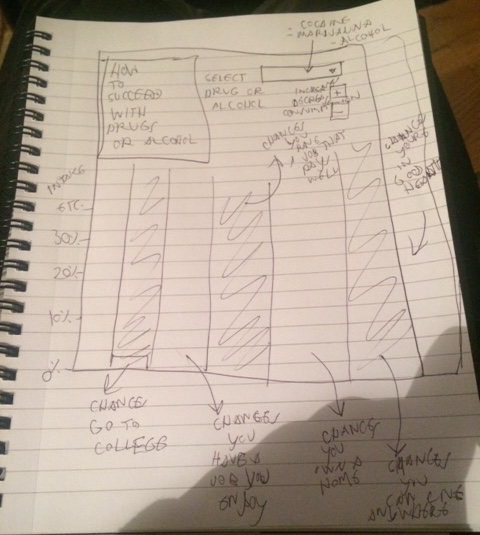 COCAINE
- MARIJUANA
- ALCOHOL
HOW
TO
SUCCEED
WITH
DRUGS
OR ALCOHOL
SELECT
DRUG OR
ALCOHOL
INCREASE
DECREASE
+
-
CHANCES
YOU
HAVE
A JOB THAT
PAYS
WELL
CHANCES
IN
GOOD
HEALTH
INTAKE
ETC.
30%
20%
10%
0%
CHANCES
GO TO
COLLEGE
CHANCES
YOU
HAVE A
JOB YOU
ENJOY
CHANCES
YOU
OWN A
HOME
CHANCES
YOU
CAN LIVE
ANYWHERE